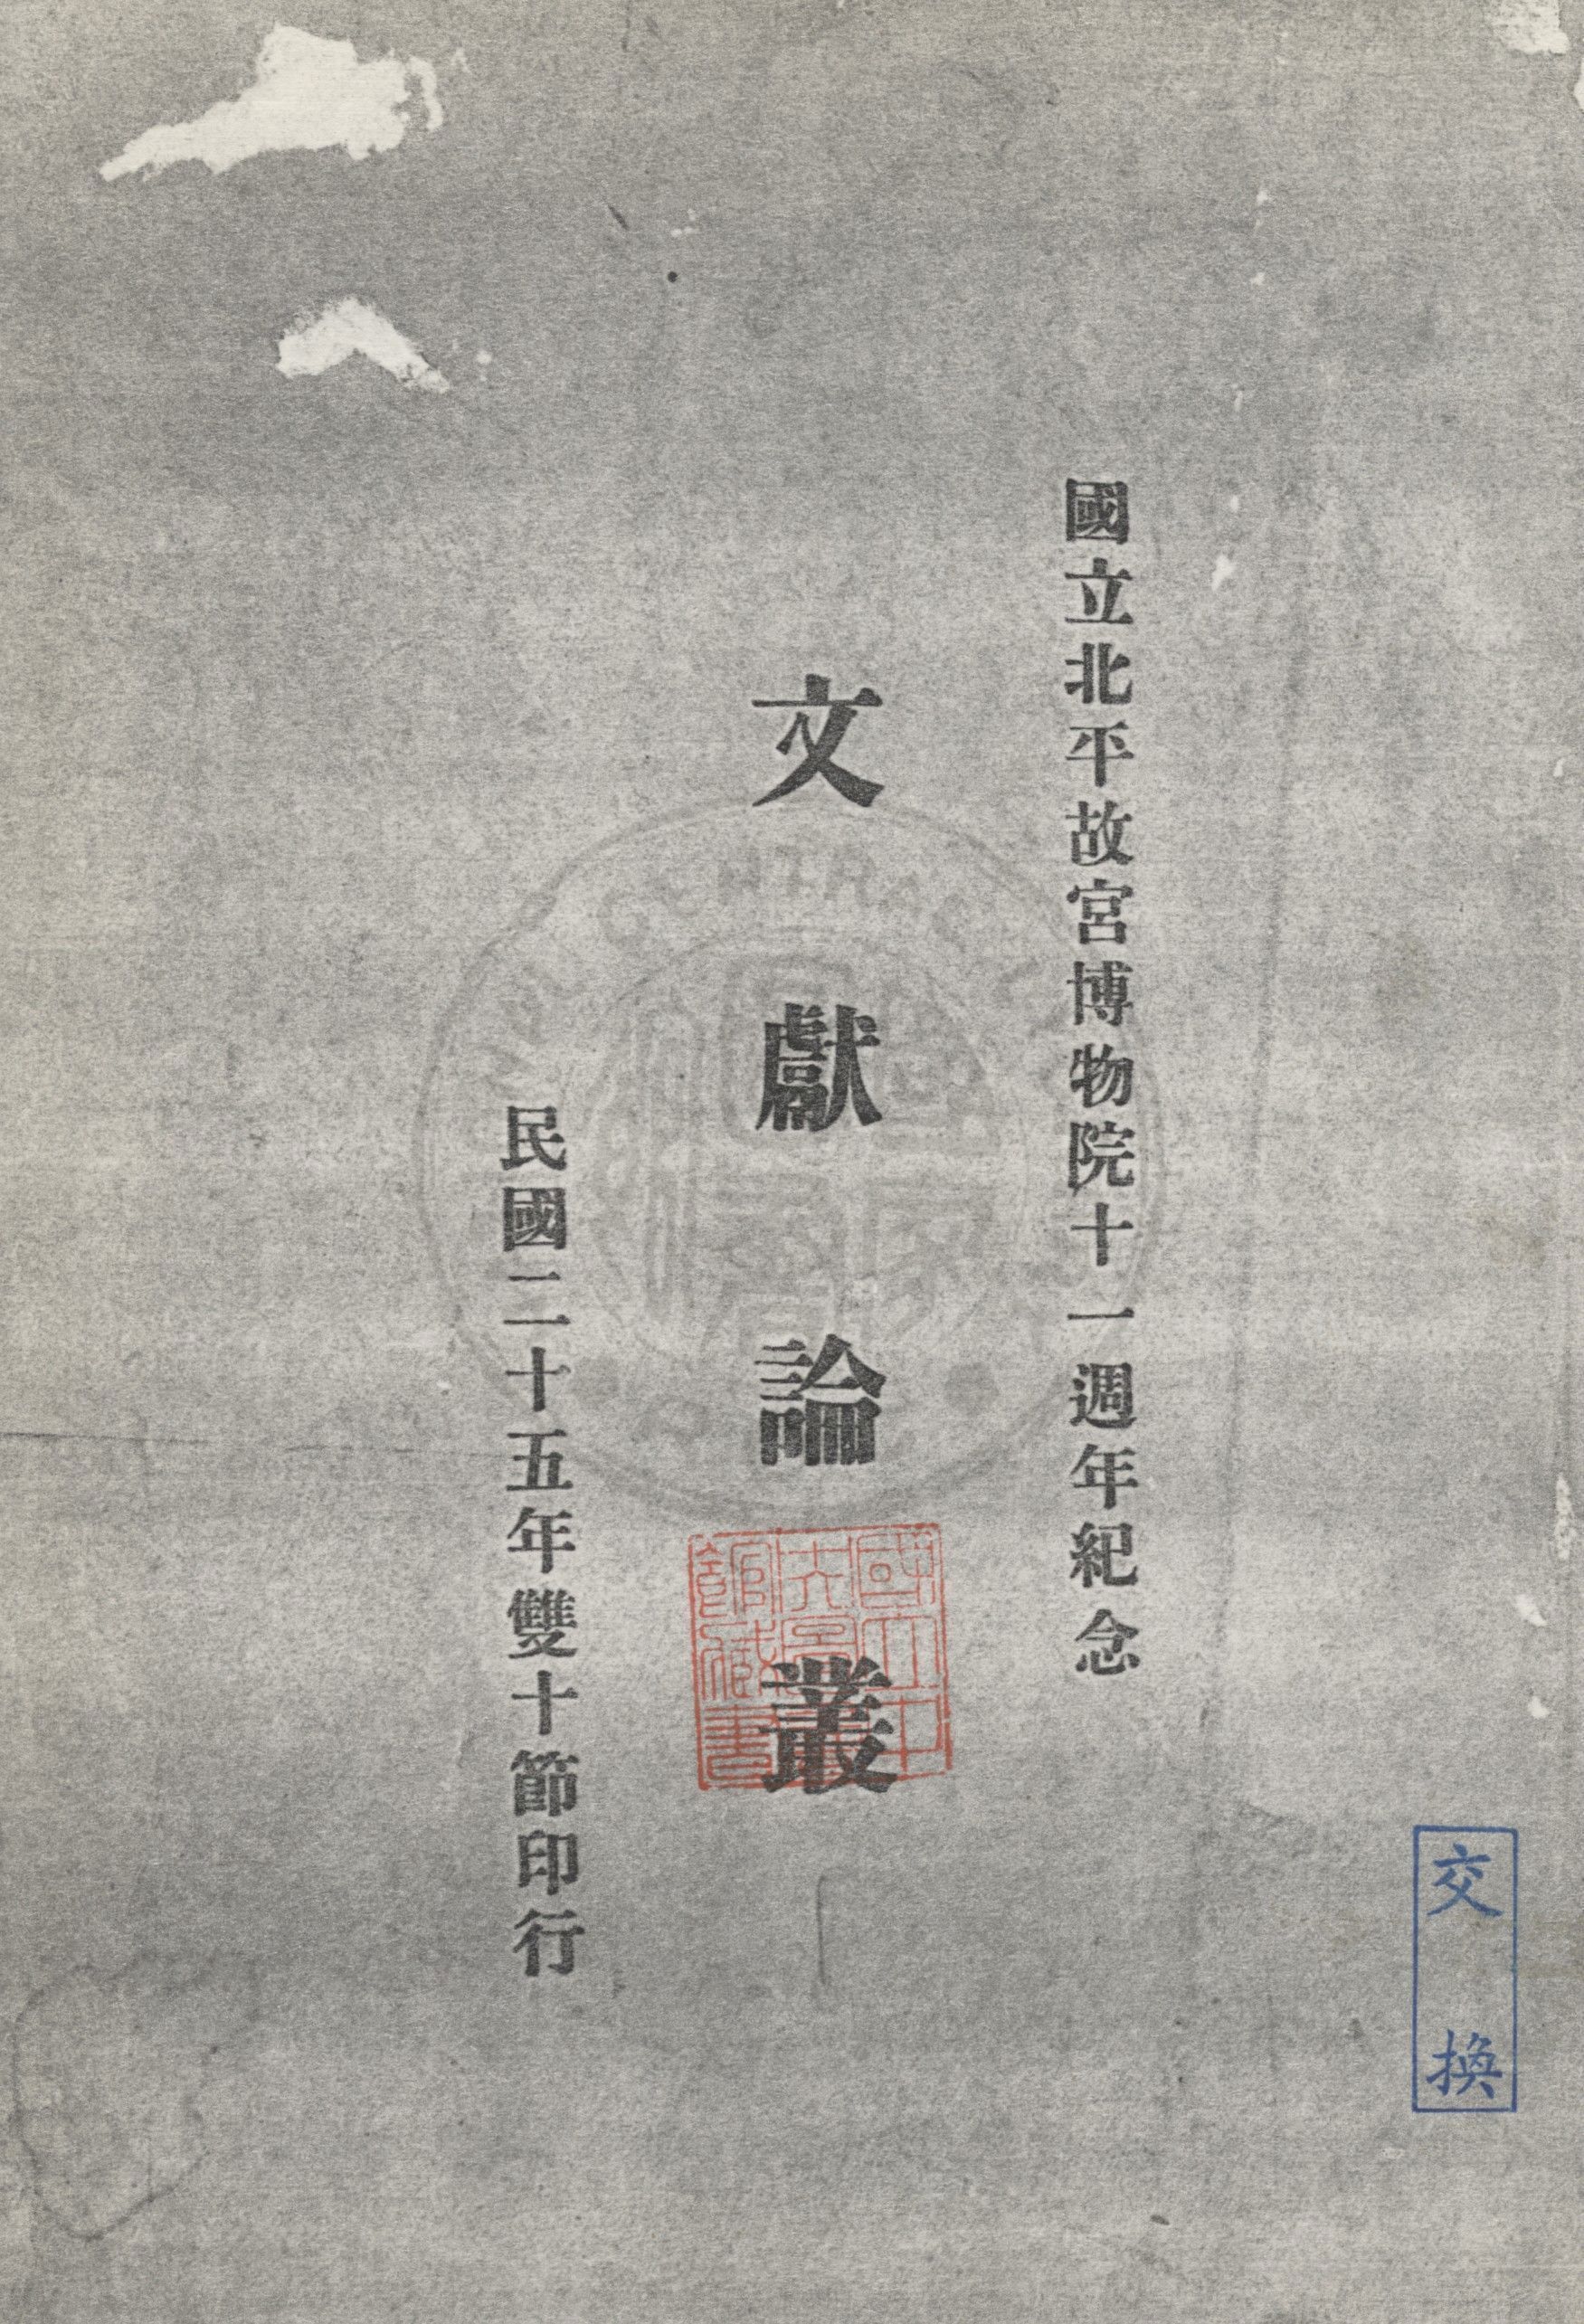 國立北平故宮博物院十一週年紀念
文獻論叢
國立中
央圖書
館藏書
民國二十五年雙十節印行
交換